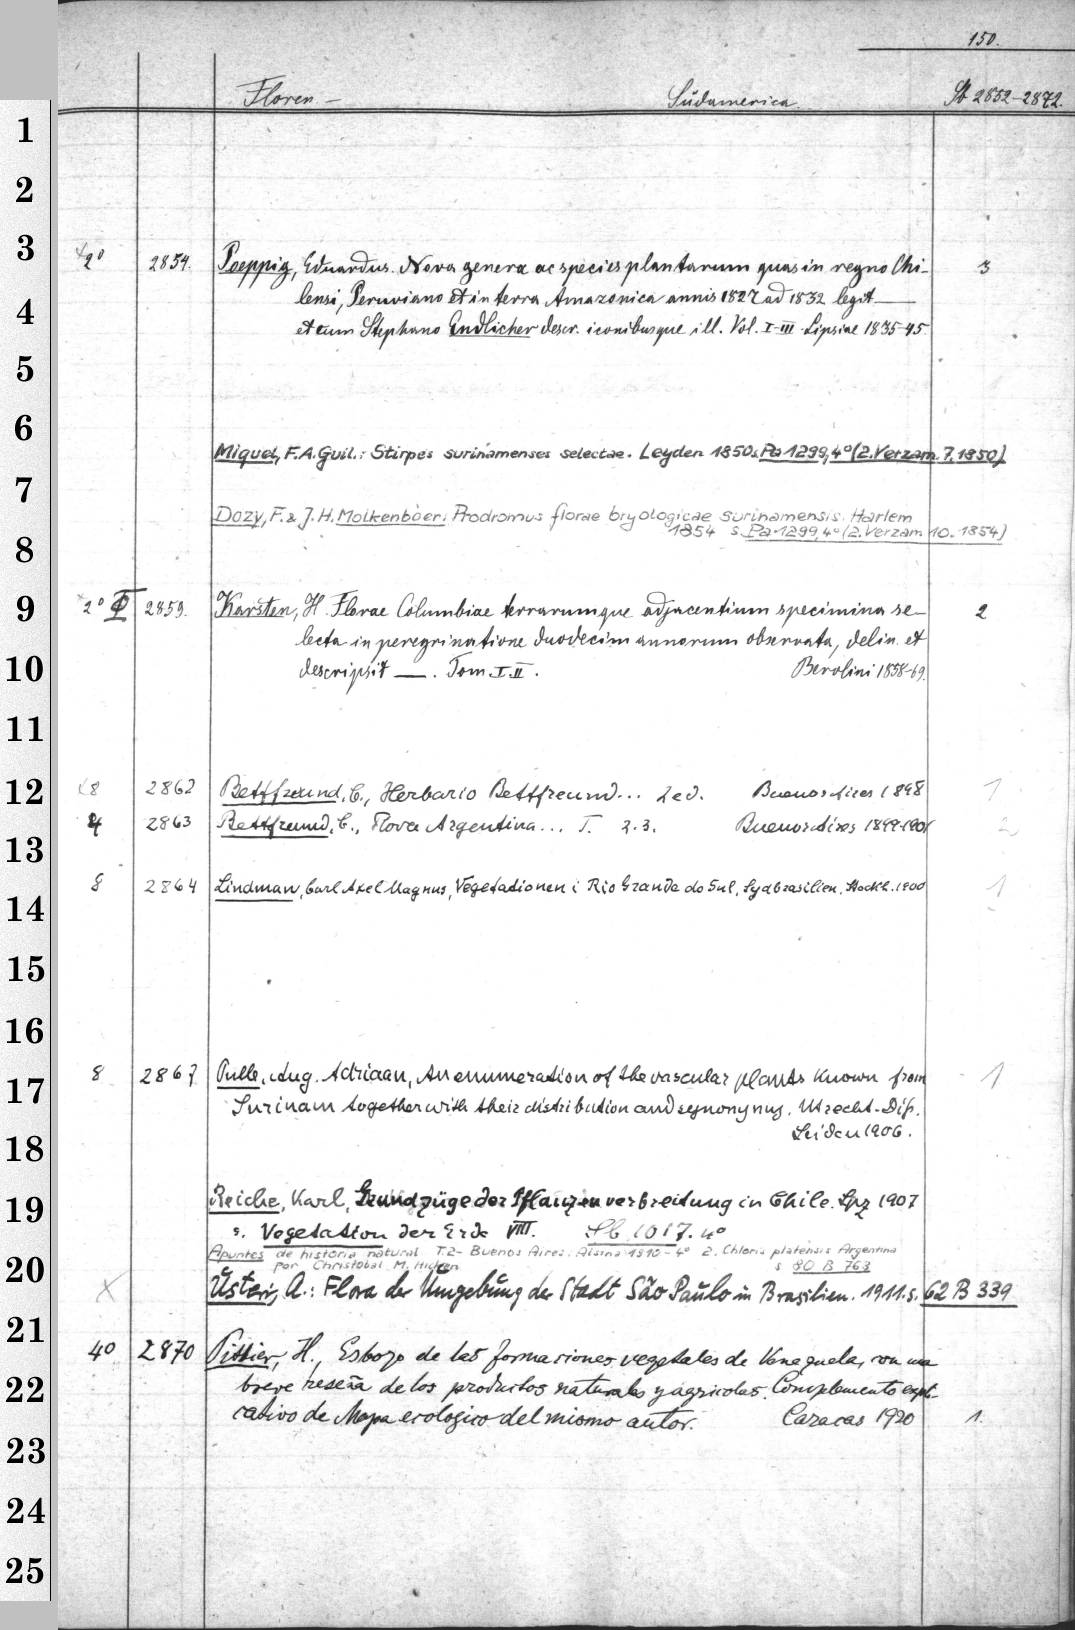 150.
Floren — Südamerica. Pb 2852–2872.
1
2
3
2° 2854. Poeppig, Eduardus. Nova genera ac species plantarum quas in regno Chi- 3
4
lensi, Peruviano et in terra Amazonica annis 1827 ad 1832 legit —
et cum Stephano Endlicher descr. iconibusque ill. Vol. I-III. Lipsiae 1835-45.
5
6
Miquel, F.A. Guil.: Stirpes surinamenses selectae. Leyden 1850 s. Pa 1299, 4° (2. Verzam. 7. 1850)
7
Dozy, F. & J.H. Molkenboer: Prodromus florae bryologicae surinamensis. Harlem
1854 s. Pa 1299, 4° (2. Verzam 10. 1854)
8
9
2° 2859. Karsten, H. Florae Columbiae terrarumque adjacentium specimina se- 2
lecta in peregrinatione duodecim annorum observata, delin. et
10
descripsit — . Tom. I. II. Berolini 1858-69.
11
12
8 2862 Bettfreund, C., Herbario Bettfreund... 2 ed. Buenos Aires 1898 1
4 2863 Bettfreund, C., Flora Argentina... T. 2.3. Buenos Aires 1899-1901 2
13
8 2864 Lindman, Carl Axel Magnus, Vegetationen i Rio Grande do Sul, Sydbrasilien. Stockh. 1900 1
14
15
16
8 2867 Pulle, Aug. Adriaan, An enumeration of the vascular plants known from 1
17
Surinam together with their distribution and synonymy. Utrecht-Diss.
Leiden 1906.
18
19
Reiche, Karl, Grundzüge der Pflanzenverbreitung in Chile. Lpz 1907
s. Vegetation der Erde VIII. Pb 1017. 4°
Apuntes de historia natural T.2- Buenos Aires: Alsina 1910 - 4° 2. Chloris platensis Argentina
por Christobal M. Hicken s 80 B 763
20
Usteri, A.: Flora der Umgebung der Stadt São Paulo in Brasilien. 1911. s. 62 B 339
21
4° 2870 Pittier, H., Esbozo de las formaciones vegetales de Venezuela, con una
22
breve reseña de los productos naturales y agricolas. Complemento expli-
cativo de Mapa ecologico del mismo autor. Caracas 1920 1.
23
24
25